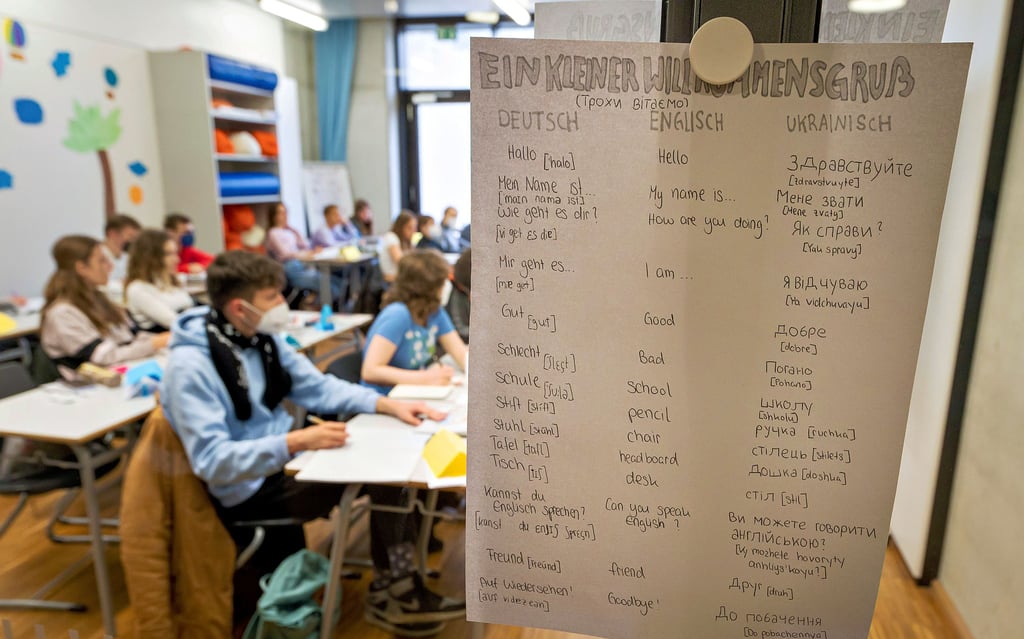 EIN KLEINER WILLKOMMENSGRUß
(Трохи вітаємо)
DEUTSCH ENGLISCH UKRAINISCH
Hallo [halo] Hello Здравствуйте
[zdravstvuyte]
Mein Name ist... My name is... Мене звати
[main namə ist] [Mene zvaty]
Wie geht es dir? How are you doing? Як справи?
[vi get es diɐ] [Yak spravy]
Mir geht es... I am ... Я відчуваю
[Ya vidchuvayu]
Gut [gut] Good Добре
[dobre]
Schlecht Bad Погано
[Pohano]
Schule [ʃu:lə] School школу
[shkolu]
Stift [ʃtift] pencil ручка [ruchka]
Stuhl chair стілець [stilets]
Tafel [tafl] headboard Дошка [doshka]
Tisch [tiʃ] desk стіл [stil]
Kannst du Can you speak Ви можете говорити
Englisch sprechen? English ? англійською?
[Vy mozhete hovoryty
anhliys'koyu?]
Freund friend Друг [druh]
Auf Wiedersehen! Goodbye! До побачення
[Do pobachennya]